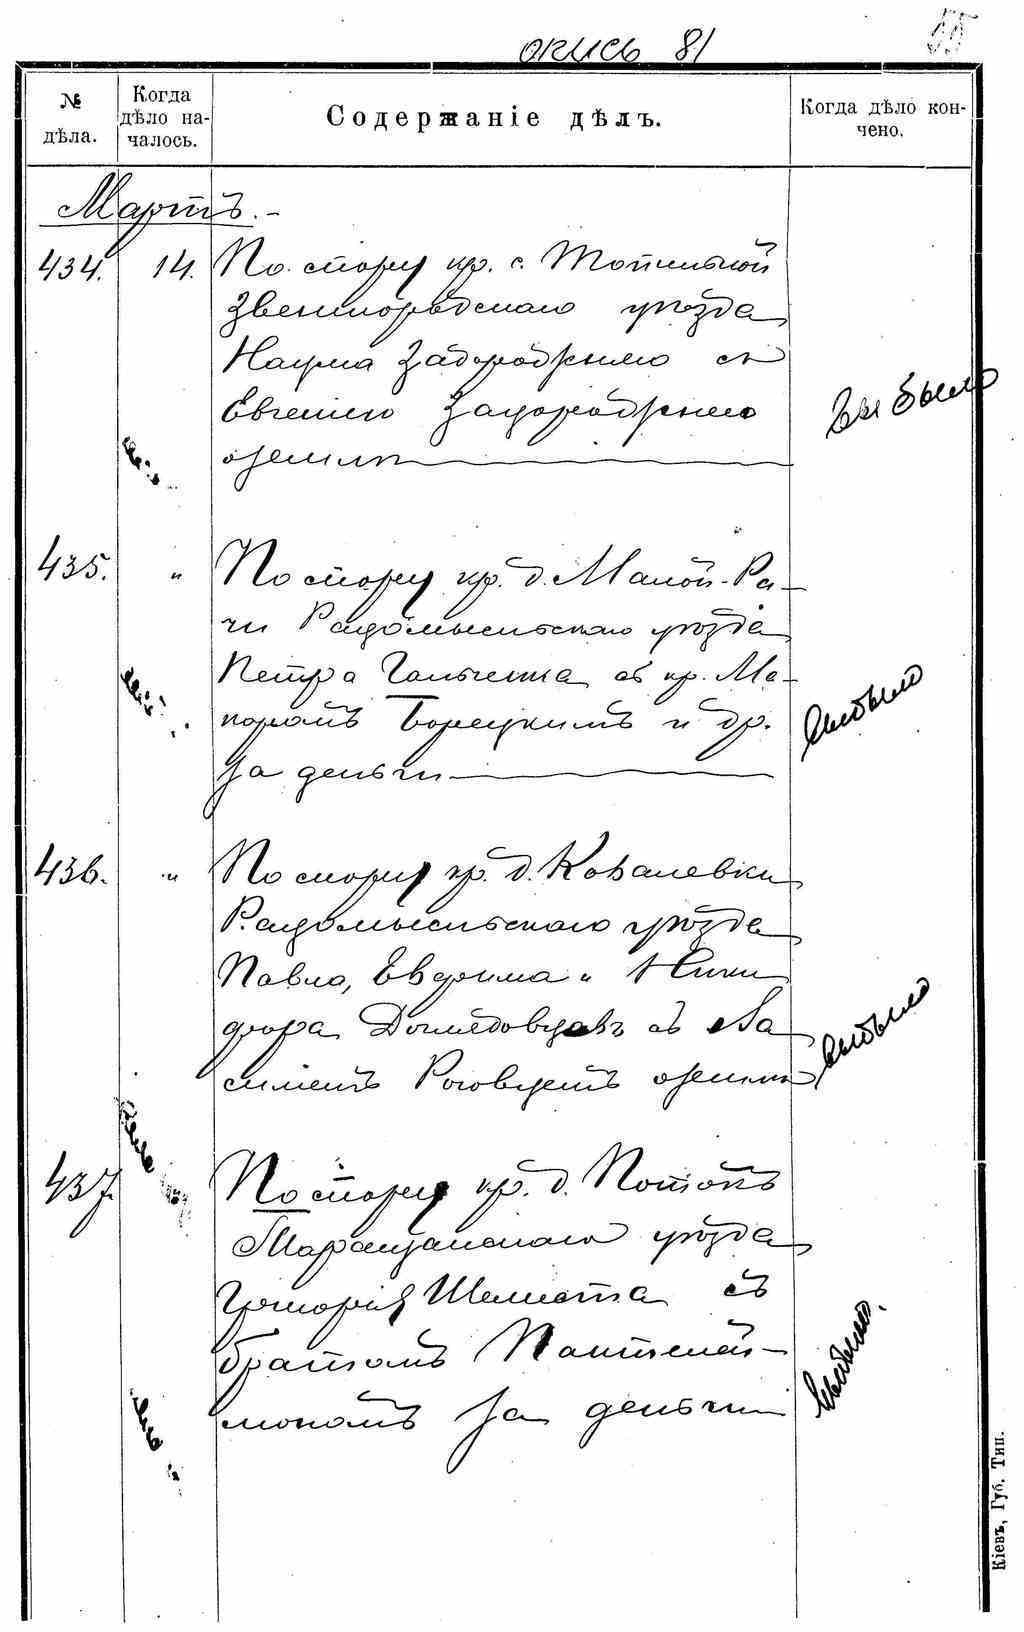 опись 81
55
№ дѣла.
Когда дѣло на-
чалось.
Содержаніе дѣлъ.
Когда дѣло кон-
чено.
Мартъ.-
434. 14. По спору кр. с. Топильной
Звенигородскаго уѣзда
Наума Задорожнего съ
Евгенію
о землѣ
выбыло
435. " По спору кр. д. Малой-Ра-
чи Радомысльскаго уѣзда
Петра Гальченка съ кр. Ма-
каромъ Борецкимъ и др.
за деньги
выбыло
436. " По спору кр. д. Ковалевки
Радомысльскаго уѣзда
Павла, Евфима и Ники
фора съ Ма
симомъ о землѣ
выбыло
437. По спору кр. д. Потокъ
Таращанскаго уѣзда
Григорія Шелеста съ
братомъ Пантелей-
мономъ за деньги
выбыло.
Кіевъ, Губ. Тип.